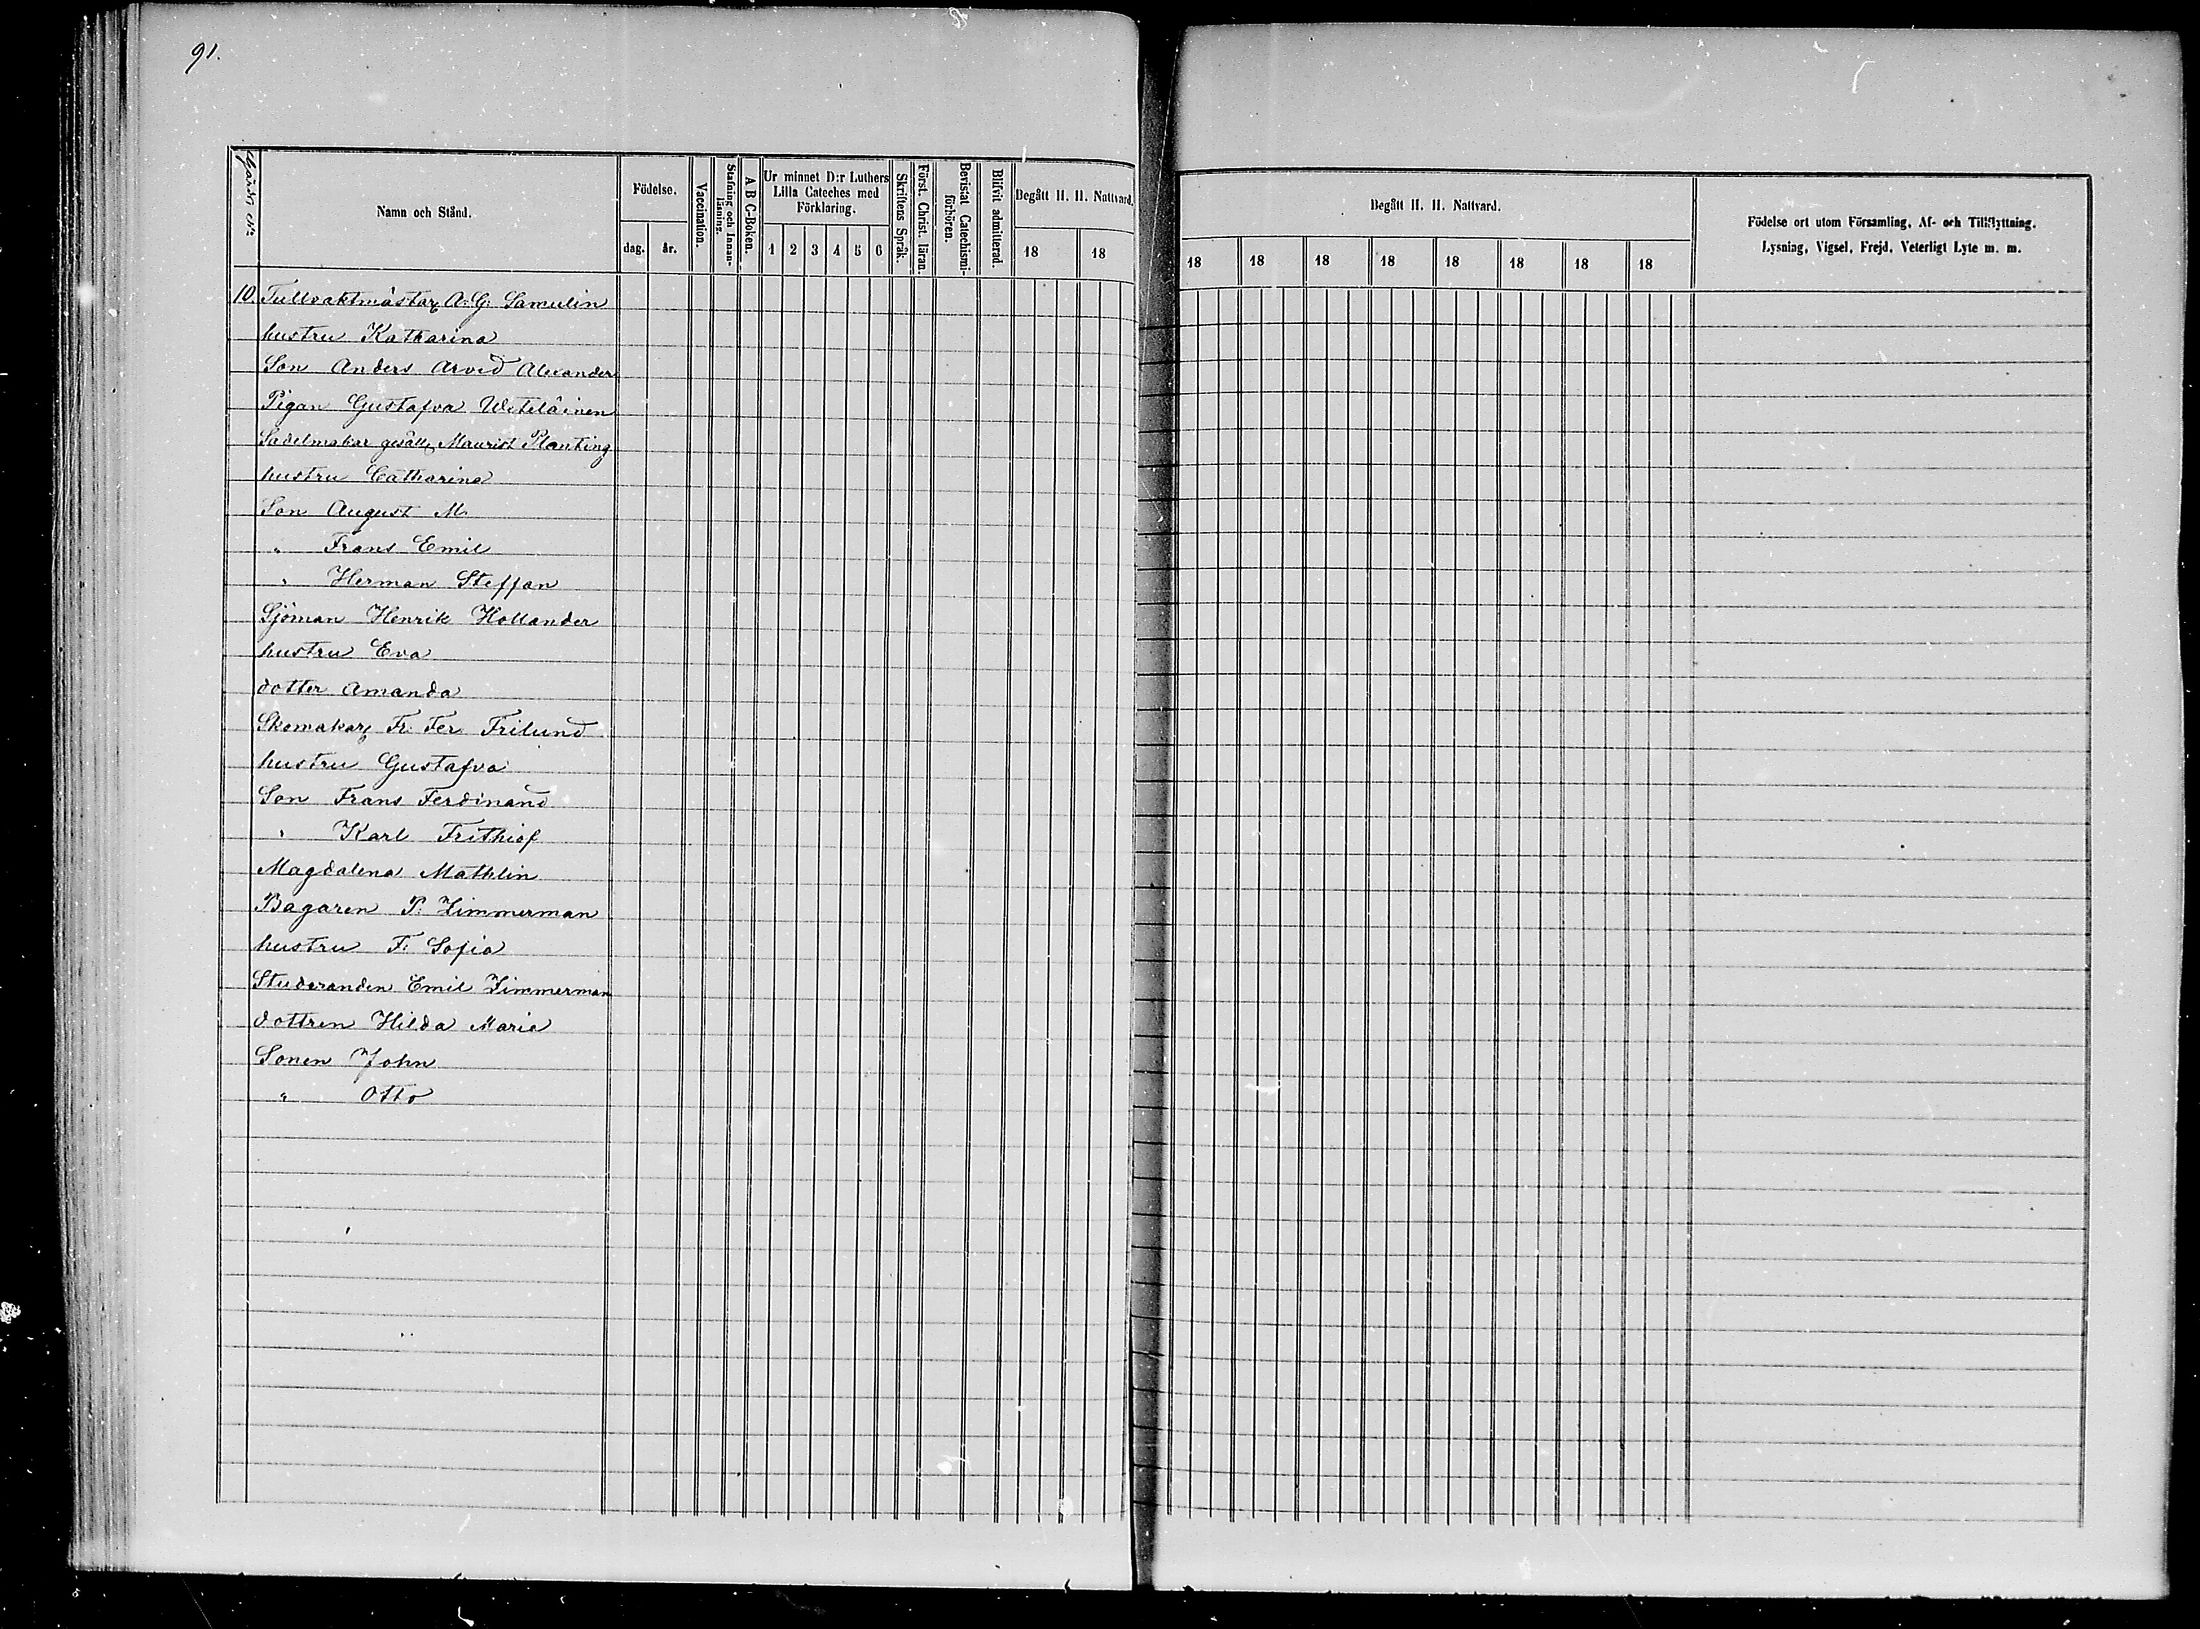 91.
Gårds No
Namn och Stånd.
Födelse.
dag.
år.
Vaccination.
Stafning och Innan-
läsning.
A B C-Boken.
Ur minnet D:r Luthers
Lilla Cateches med
Förklaring.
1 2 3 4 5 6
Skriftens Språk.
Först. Christ. läran.
Bevistat Catechismi-
förhören.
Blifvit admitterad.
Begått H. H. Nattvard.
18 18
Begått H. H. Nattvard.
18 18 18 18 18 18 18 18
Födelse ort utom Församling, Af- och Tillflyttning,
Lysning, Vigsel, Frejd, Veterligt Lyte m. m.
10. Tullvaktmästar A: G: Samulin
hustru Katharina
Son Anders Arvid Alexander
Pigan Gustafva Weteläinen
Sadelmakar gesäll Maurist Planting
hustru Catharina
Son August M.
" Frans Emil
" Herman Steffan
Sjöman Henrik Hollander
hustru Eva
dotter Amanda
Skomakar Fr: Fer Frilund
hustru Gustafva
Son Frans Ferdinand
" Karl Frithiof
Magdalena Mathlin
Bagaren P: Zimmerman
hustru F: Sofia
Studeranden Emil Zimmerman
dottren Hilda Maria
Sonen John
" Otto